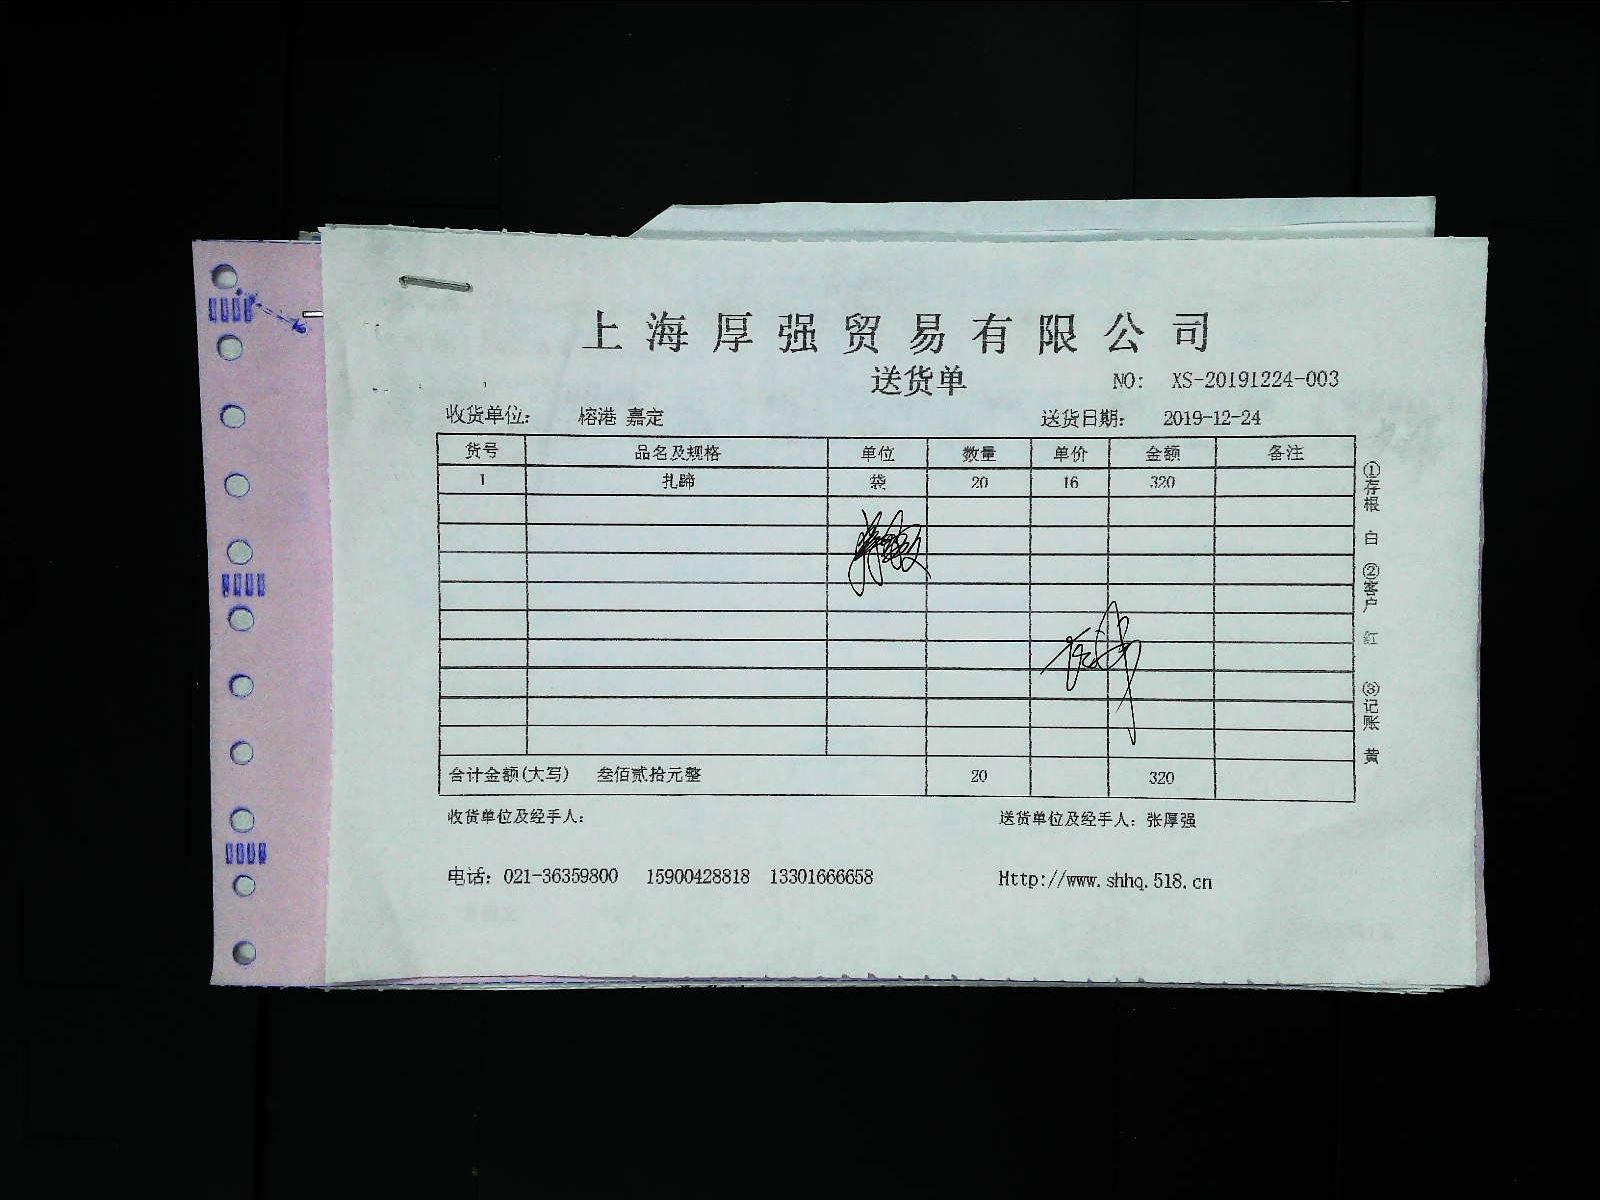 上海厚强贸易有限公司
送货单
NO: XS-20191224-003
收货单位: 榕港 嘉定 送货日期: 2019-12-24
货号 品名及规格 单位 数量 单价 金额 备注
1 扎蹄 袋 20 16 320
合计金额(大写) 叁佰贰拾元整 20 320
收货单位及经手人: 送货单位及经手人: 张厚强
电话: 021-36359800 15900428818 13301666658 Http://www.shhq.518.cn
①存根 白 ②客户 红 ③记账 黄